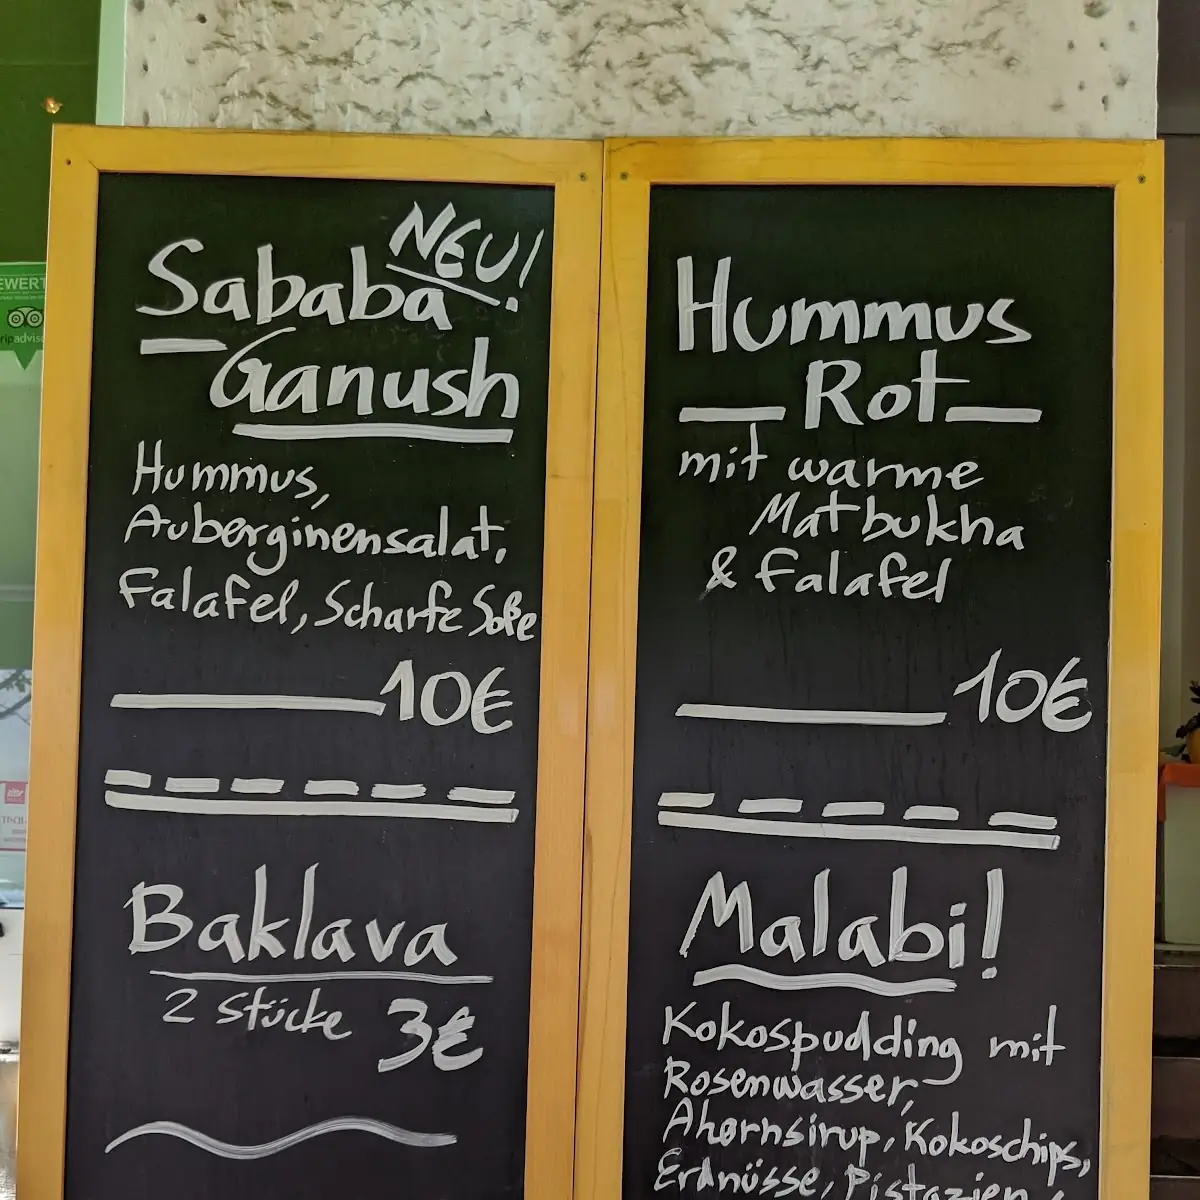 NEU!
Sababa
Ganush
Hummus,
Auberginensalat,
Falafel, Scharfe Soße
10€
Baklava
2 Stücke 3€
Hummus
Rot
mit warme
Matbukha
& Falafel
10€
Malabi!
Kokospudding mit
Rosenwasser,
Ahornsirup, Kokoschips,
Erdnüsse, Pistazien